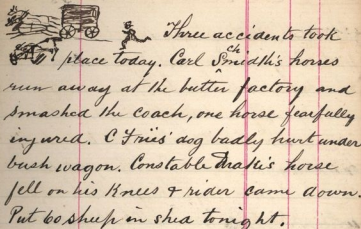 Three accidents took
place today. Carl Schmidth's horses
run away at the butter factory and
smashed the coach, one horse fearfully
injured. C Friis' dog badly hurt under
bush wagon. Constable horse
fell on his Knees & rider came down.
Put 60 sheep in shed tonight.